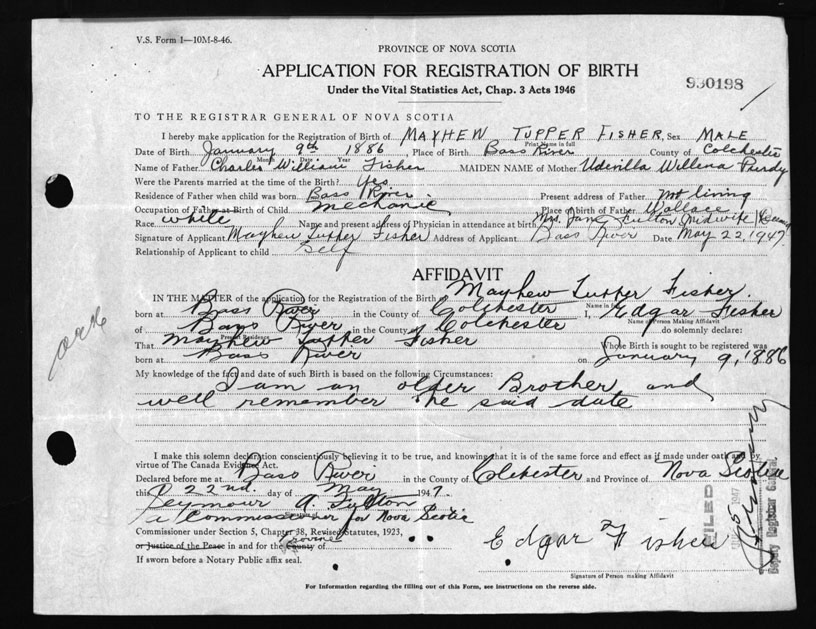 V.S. Form 1—10M-8-46.
PROVINCE OF NOVA SCOTIA
APPLICATION FOR REGISTRATION OF BIRTH
930198
Under the Vital Statistics Act, Chap. 3 Acts 1946
TO THE REGISTRAR GENERAL OF NOVA SCOTIA
I hereby make application for the Registration of Birth of MAYHEW TUPPER FISHER, Sex MALE
Print Name in full
Date of Birth January 9th 1886, Place of Birth Bass River County of Colchester
Month Date Year
Name of Father Charles William Fisher MAIDEN NAME of Mother Udevilla Willena Purdy
Were the Parents married at the time of the Birth? Yes
Residence of Father when child was born Bass River Present address of Father not living
Occupation of Father at Birth of Child mechanic Place of birth of Father Wallace
Race white Name and present address of Physician in attendance at birth Mrs. Jane Fulton (Midwife)
Signature of Applicant Mayhew Tupper Fisher Address of Applicant Bass River Date May 22, 1947.
Relationship of Applicant to child Self
AFFIDAVIT
IN THE MATTER of the application for the Registration of the Birth of Mayhew Tupper Fisher
Name in full
born at Bass River in the County of Colchester I, Edgar Fisher
Name of Person Making Affidavit
of Bass River in the County of Colchester do solemnly declare:
Present Residence
That Mayhew Tupper Fisher Whose Birth is sought to be registered was
born at Bass River on January 9, 1886
My knowledge of the fact and date of such Birth is based on the following Circumstances:
I am an older Brother and
well remember the said date
I make this solemn declaration conscientiously believing it to be true, and knowing that it is of the same force and effect as if made under oath and by
virtue of The Canada Evidence Act.
Declared before me at Bass River in the County of Colchester and Province of Nova Scotia
this 22nd. day of May 1947.
Seymour A. Fulton
Signature of
a Commissioner for Nova Scotia
Commissioner under Section 5, Chapter 38, Revised Statutes, 1923,
Province
or Justice of the Peace in and for the County of
If sworn before a Notary Public affix seal.
Edgar Fisher
Signature of Person making Affidavit
FILED
1947
Deputy Registrar General
For Information regarding the filling out of this Form, see instructions on the reverse side.